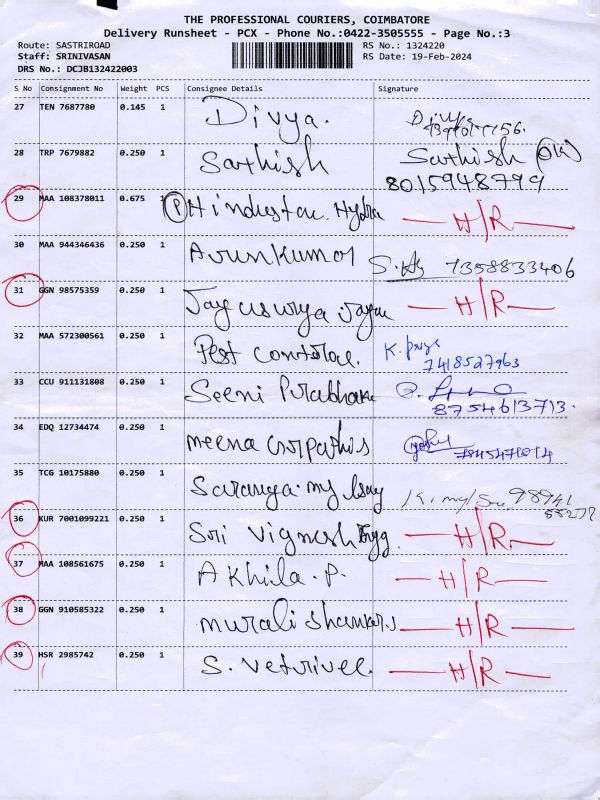 THE PROFESSIONAL COURIERS, COIMBATORE
Delivery Runsheet - PCX - Phone No.:0422-3505555 - Page No.:3
Route: SASTRIROAD
Staff: SRINIVASAN
DRS No.: DCJB132422003
RS No.: 1324220
RS Date: 19-Feb-2024
S No Consignment No Weight PCS Consignee Details Signature
27 TEN 7687780 0.145 1 Divya.
28 TRP 7679882 0.250 1 Sathish Sathish
8015948779
29 MAA 108378011 0.675 (P) Hindustan Hydra H/R
30 MAA 944346436 0.250 1 Arunkumar 7358833406
31 GGN 98575359 0.250 1 H/R
32 MAA 572300561 0.250 1 Pest K. priya
7418527963
33 CCU 911131808 0.250 1 Seeni Prabhakar
8754613713.
34 EDQ 12734474 0.250 1 meena
35 TCG 10175880 0.250 1 Saranya. 98941
36 KUR 7001099221 0.250 1 Sri Vignesh Engg. H/R
37 MAA 108561675 0.250 1 Akhila. P. H/R
38 GGN 910585322 0.250 1 murali Shankar.s H/R
39 HSR 2985742 0.250 1 S. Vetrivel. H/R